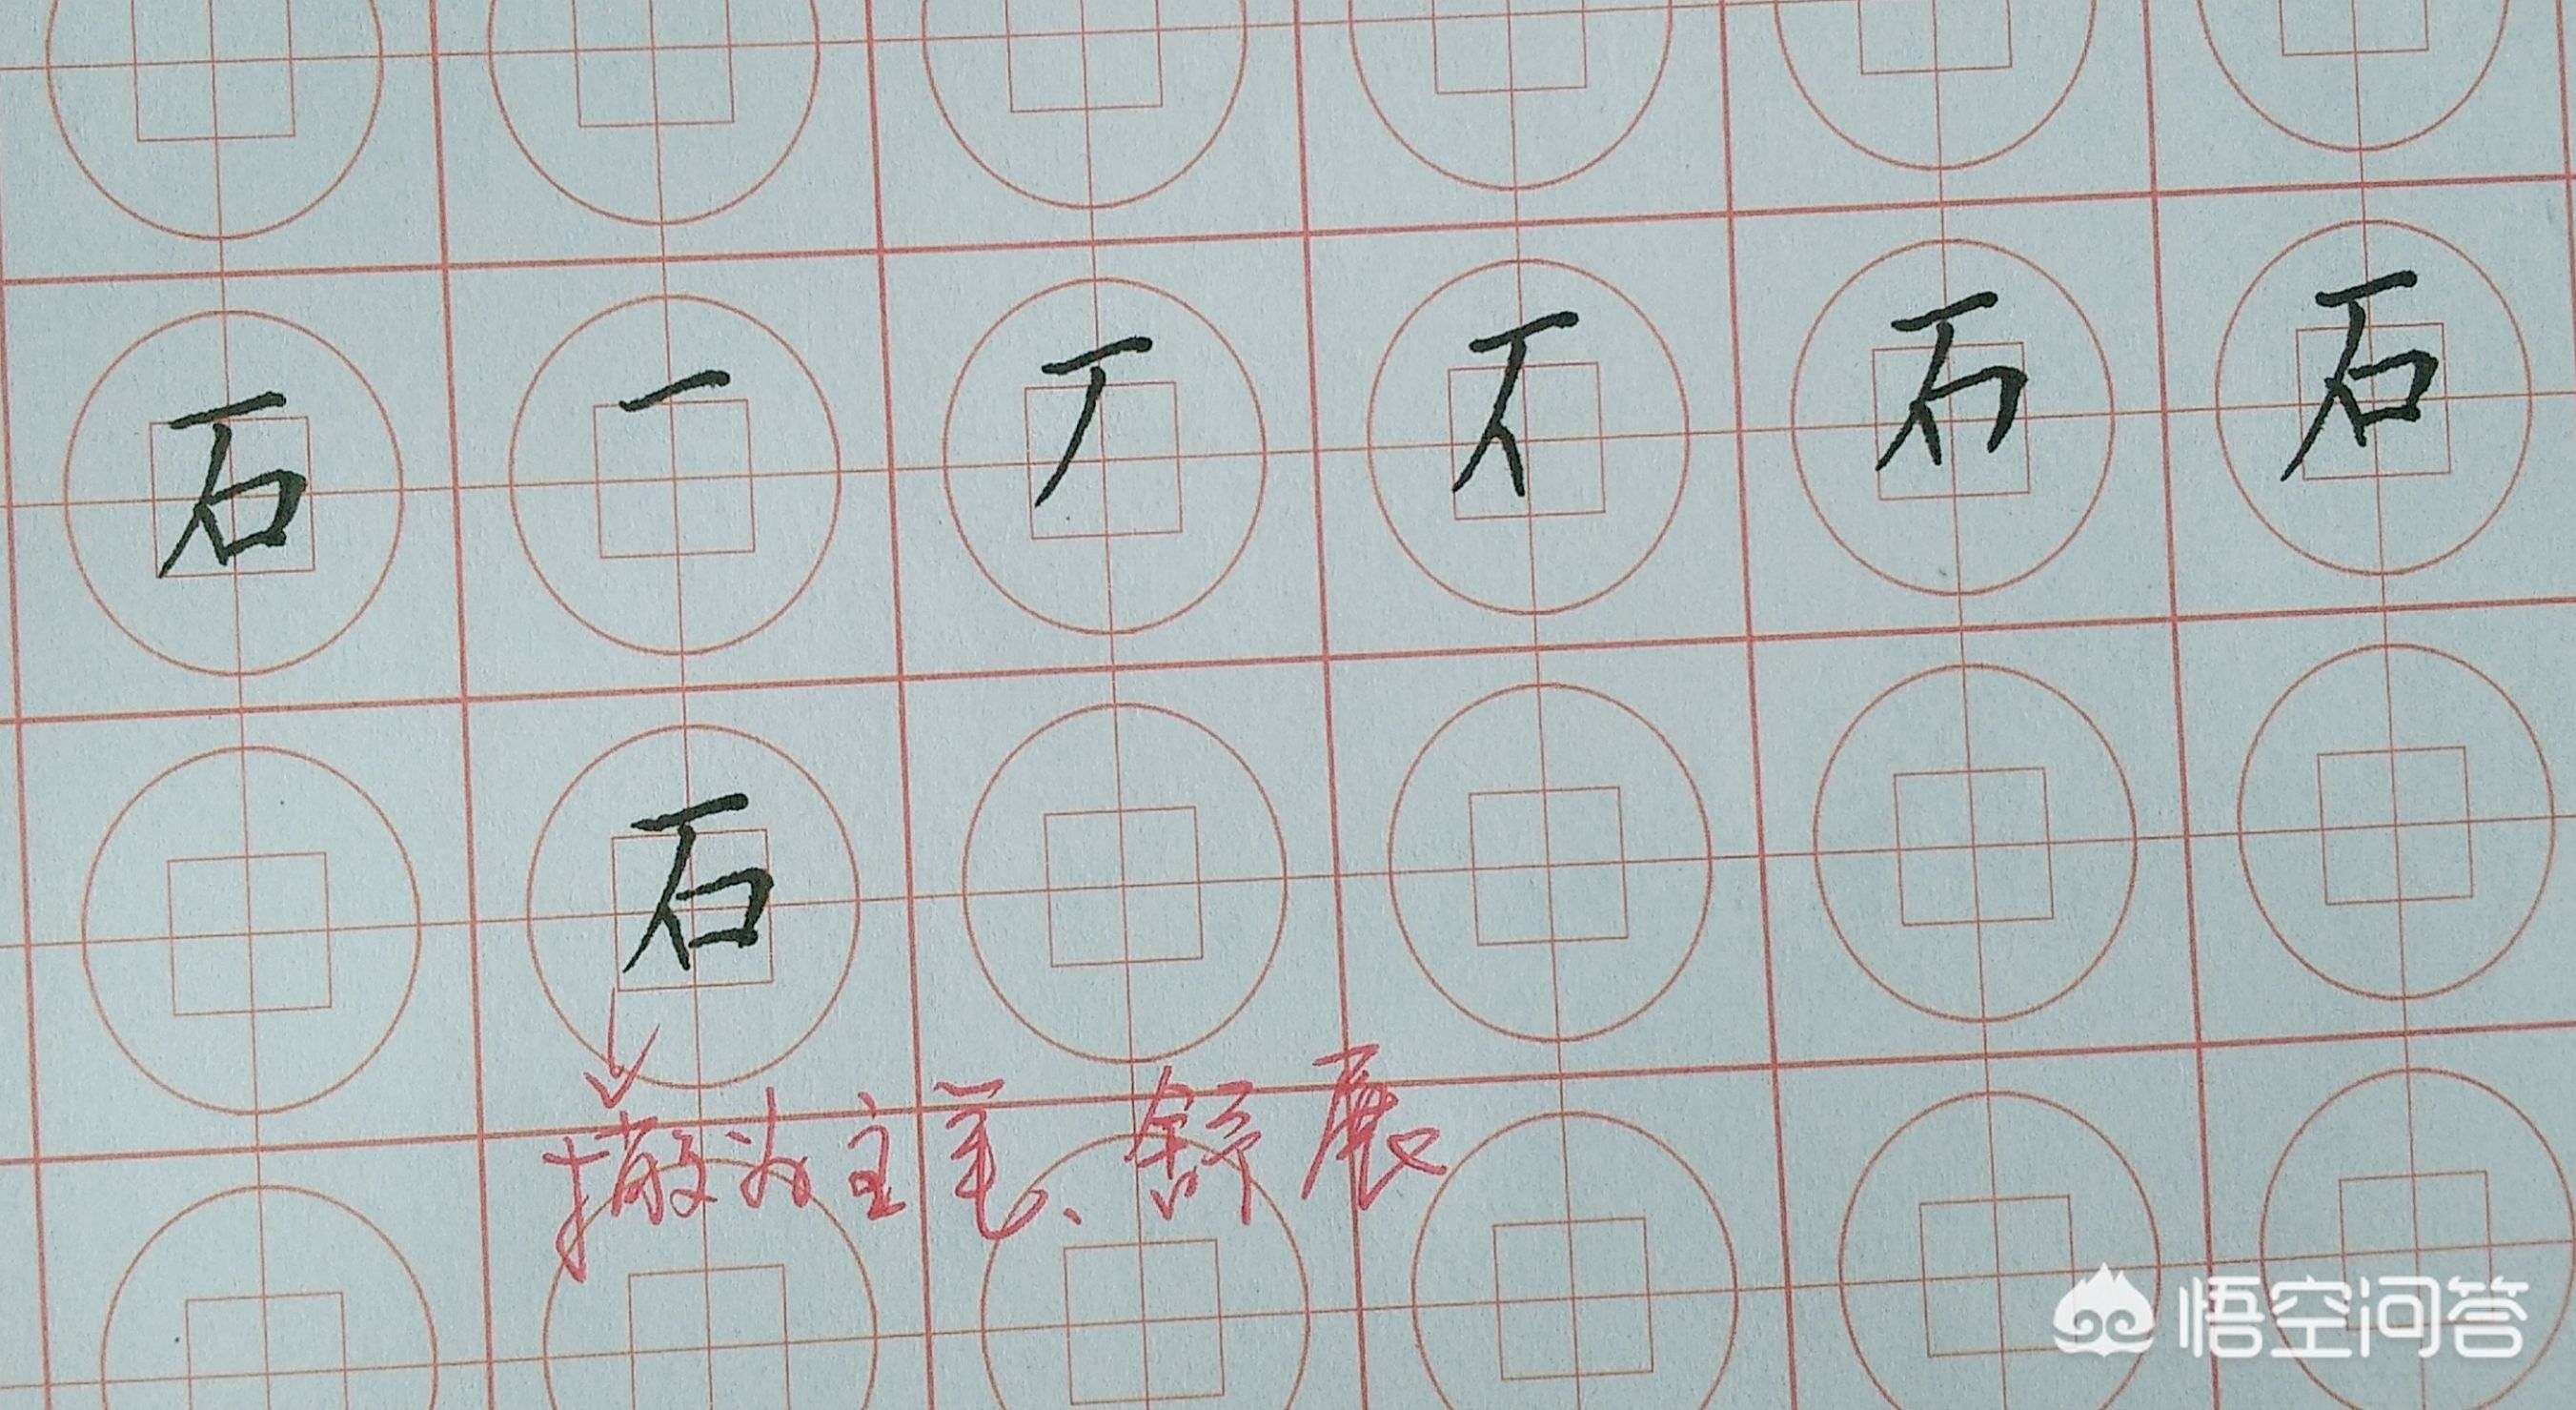 石 一 丆 不 石 石
石
撇为主笔、舒展
悟空问答